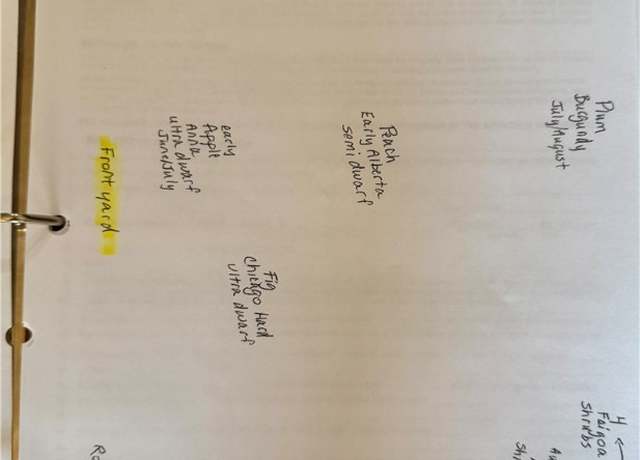 Plum
Burgundy
July/August
4 ←
Faigoa
Shrubs
Peach
Early Alberta
semi dwarf
early
Apple
Anna
ultra dwarf
June/July
Fig
Chicago Hard
ultra dwarf
Front yard